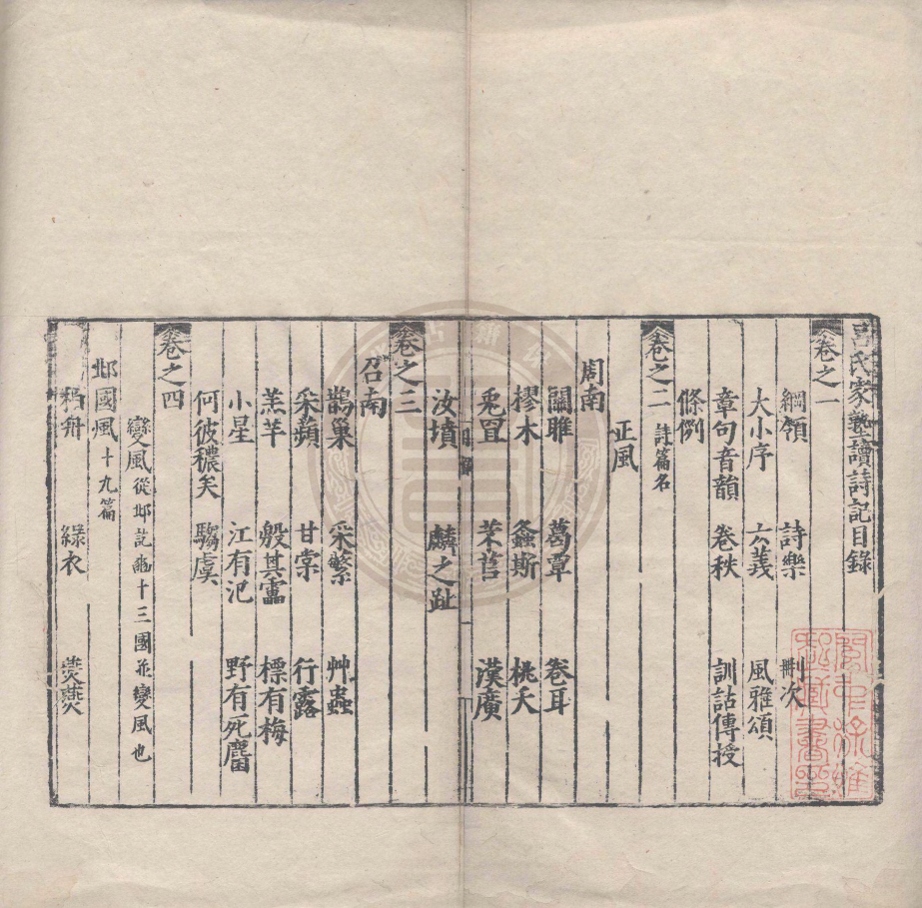 呂氏家塾讀詩記目錄
卷之一
綱領 詩樂 刪次
大小序 六義 風雅頌
章句音韻 卷秩 訓詁傳授
條例
卷之二 詩篇名
正風
周南
關雎 葛覃 卷耳
樛木 螽斯 桃夭
兎罝 芣苢 漢廣
汝墳 麟之趾
卷之三
召南
鵲巢 采蘩 艸蟲
采蘋 甘棠 行露
羔羊 殷其靁 標有梅
小星 江有汜 野有死麕
何彼穠矣 騶虞
卷之四
變風從邶訖豳十三國並變風也
邶國風十九篇
栢舟 綠衣 燕燕